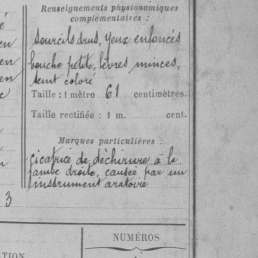 Renseignements physionomiques
complémentaires :
é
en
sourcils drus, yeux enfoncés
en
bouche petite, lèvres minces,
en
teint coloré
Taille : 1 mètre 61 centimètres.
Taille rectifiée : 1 m. cent.
Marques particulières :
cicatrice de déchirure à la
jambe droite, causée par un
instrument aratoire
3
NUMÉROS
ATION